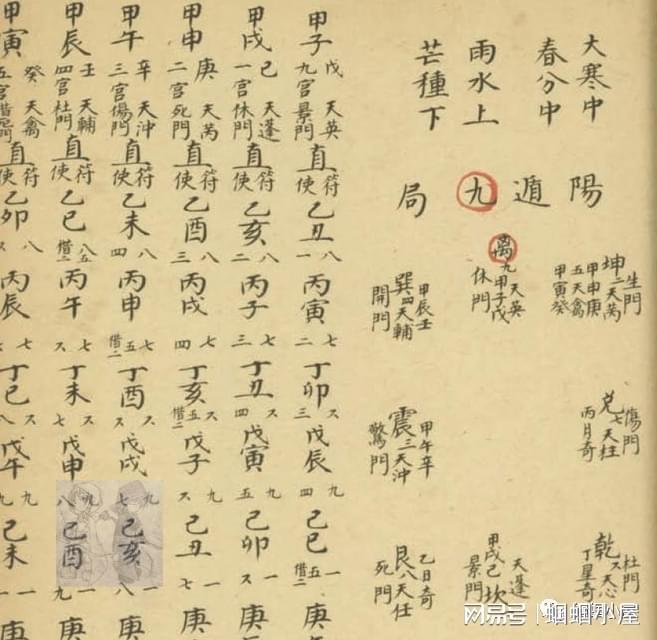 大寒中
春分中
雨水上
芒種下
陽遁九局
生門
坤二天芮
甲申庚
五天禽
甲寅癸
天英
離九甲子戊
休門
甲辰壬
巽四天輔
開門
傷門
兌七天柱
丙月奇
甲午辛
震三天冲
驚門
杜門
乾六天心
丁星奇
天蓬
甲戌己坎
景門
乙日奇
艮八天任
死門
甲子 戊 天英 九宮景門 直符使 乙丑 八 一 丙寅 七 二 丁卯 六 三 戊辰 九 四 己巳 一 五 借二 庚
甲戌 己 天蓬 一宮休門 直符使 乙亥 八 二 丙子 七 三 丁丑 六 四 戊寅 九 五 己卯 一 六 庚
甲申 庚 天芮 二宮死門 直符使 乙酉 八 三 丙戌 七 四 丁亥 六 五 借二 戊子 九 六 己丑 一 七 庚
甲午 辛 天沖 三宮傷門 直符使 乙未 八 四 丙申 七 五 借二 丁酉 六 六 戊戌 九 七 己亥 一 八 庚
甲辰 壬 天輔 四宮杜門 直符使 乙巳 八 五 借二 丙午 七 六 丁未 六 七 戊申 九 八 己酉 一 九 庚
甲寅 癸 天禽 五宮 直符使 乙卯 八 丙辰 七 丁巳 六 戊午 九 己未 一 庚
网易号
蝈蝈小屋